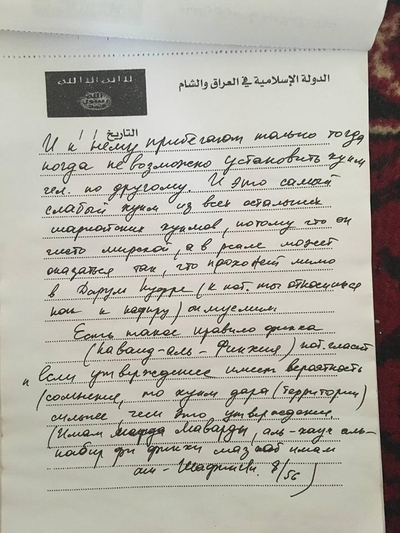 الدولة الإسلامية في العراق والشام
التاريخ / /
И к нему прибегают только тогда
когда невозможно установить хукм
чел. по другому. И это самый
слабый хукм из всех остальных
шариатских хукмов, потому что он
чисто мирской, а в реале может
оказаться так, что прохожий мимо
в Дарум куфре (к кот. мы относимся
как к кафиру) он муслим.
Есть такое правило фикха
(каваид-аль-Фикхия) кот. гласит
Если утверждение имеет вероятность
(сомнение, то хукм дара (территории)
сильнее, чем это утверждение
(Имам Маварды, аль-хауи аль-
кабир фи фикхи мазхаб имам
аш-Шафии. 8/56)